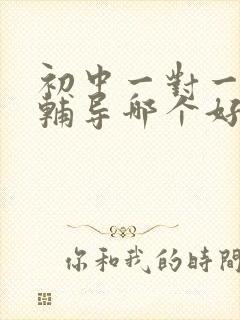 初中一對一
輔导哪个好
你和我的時間